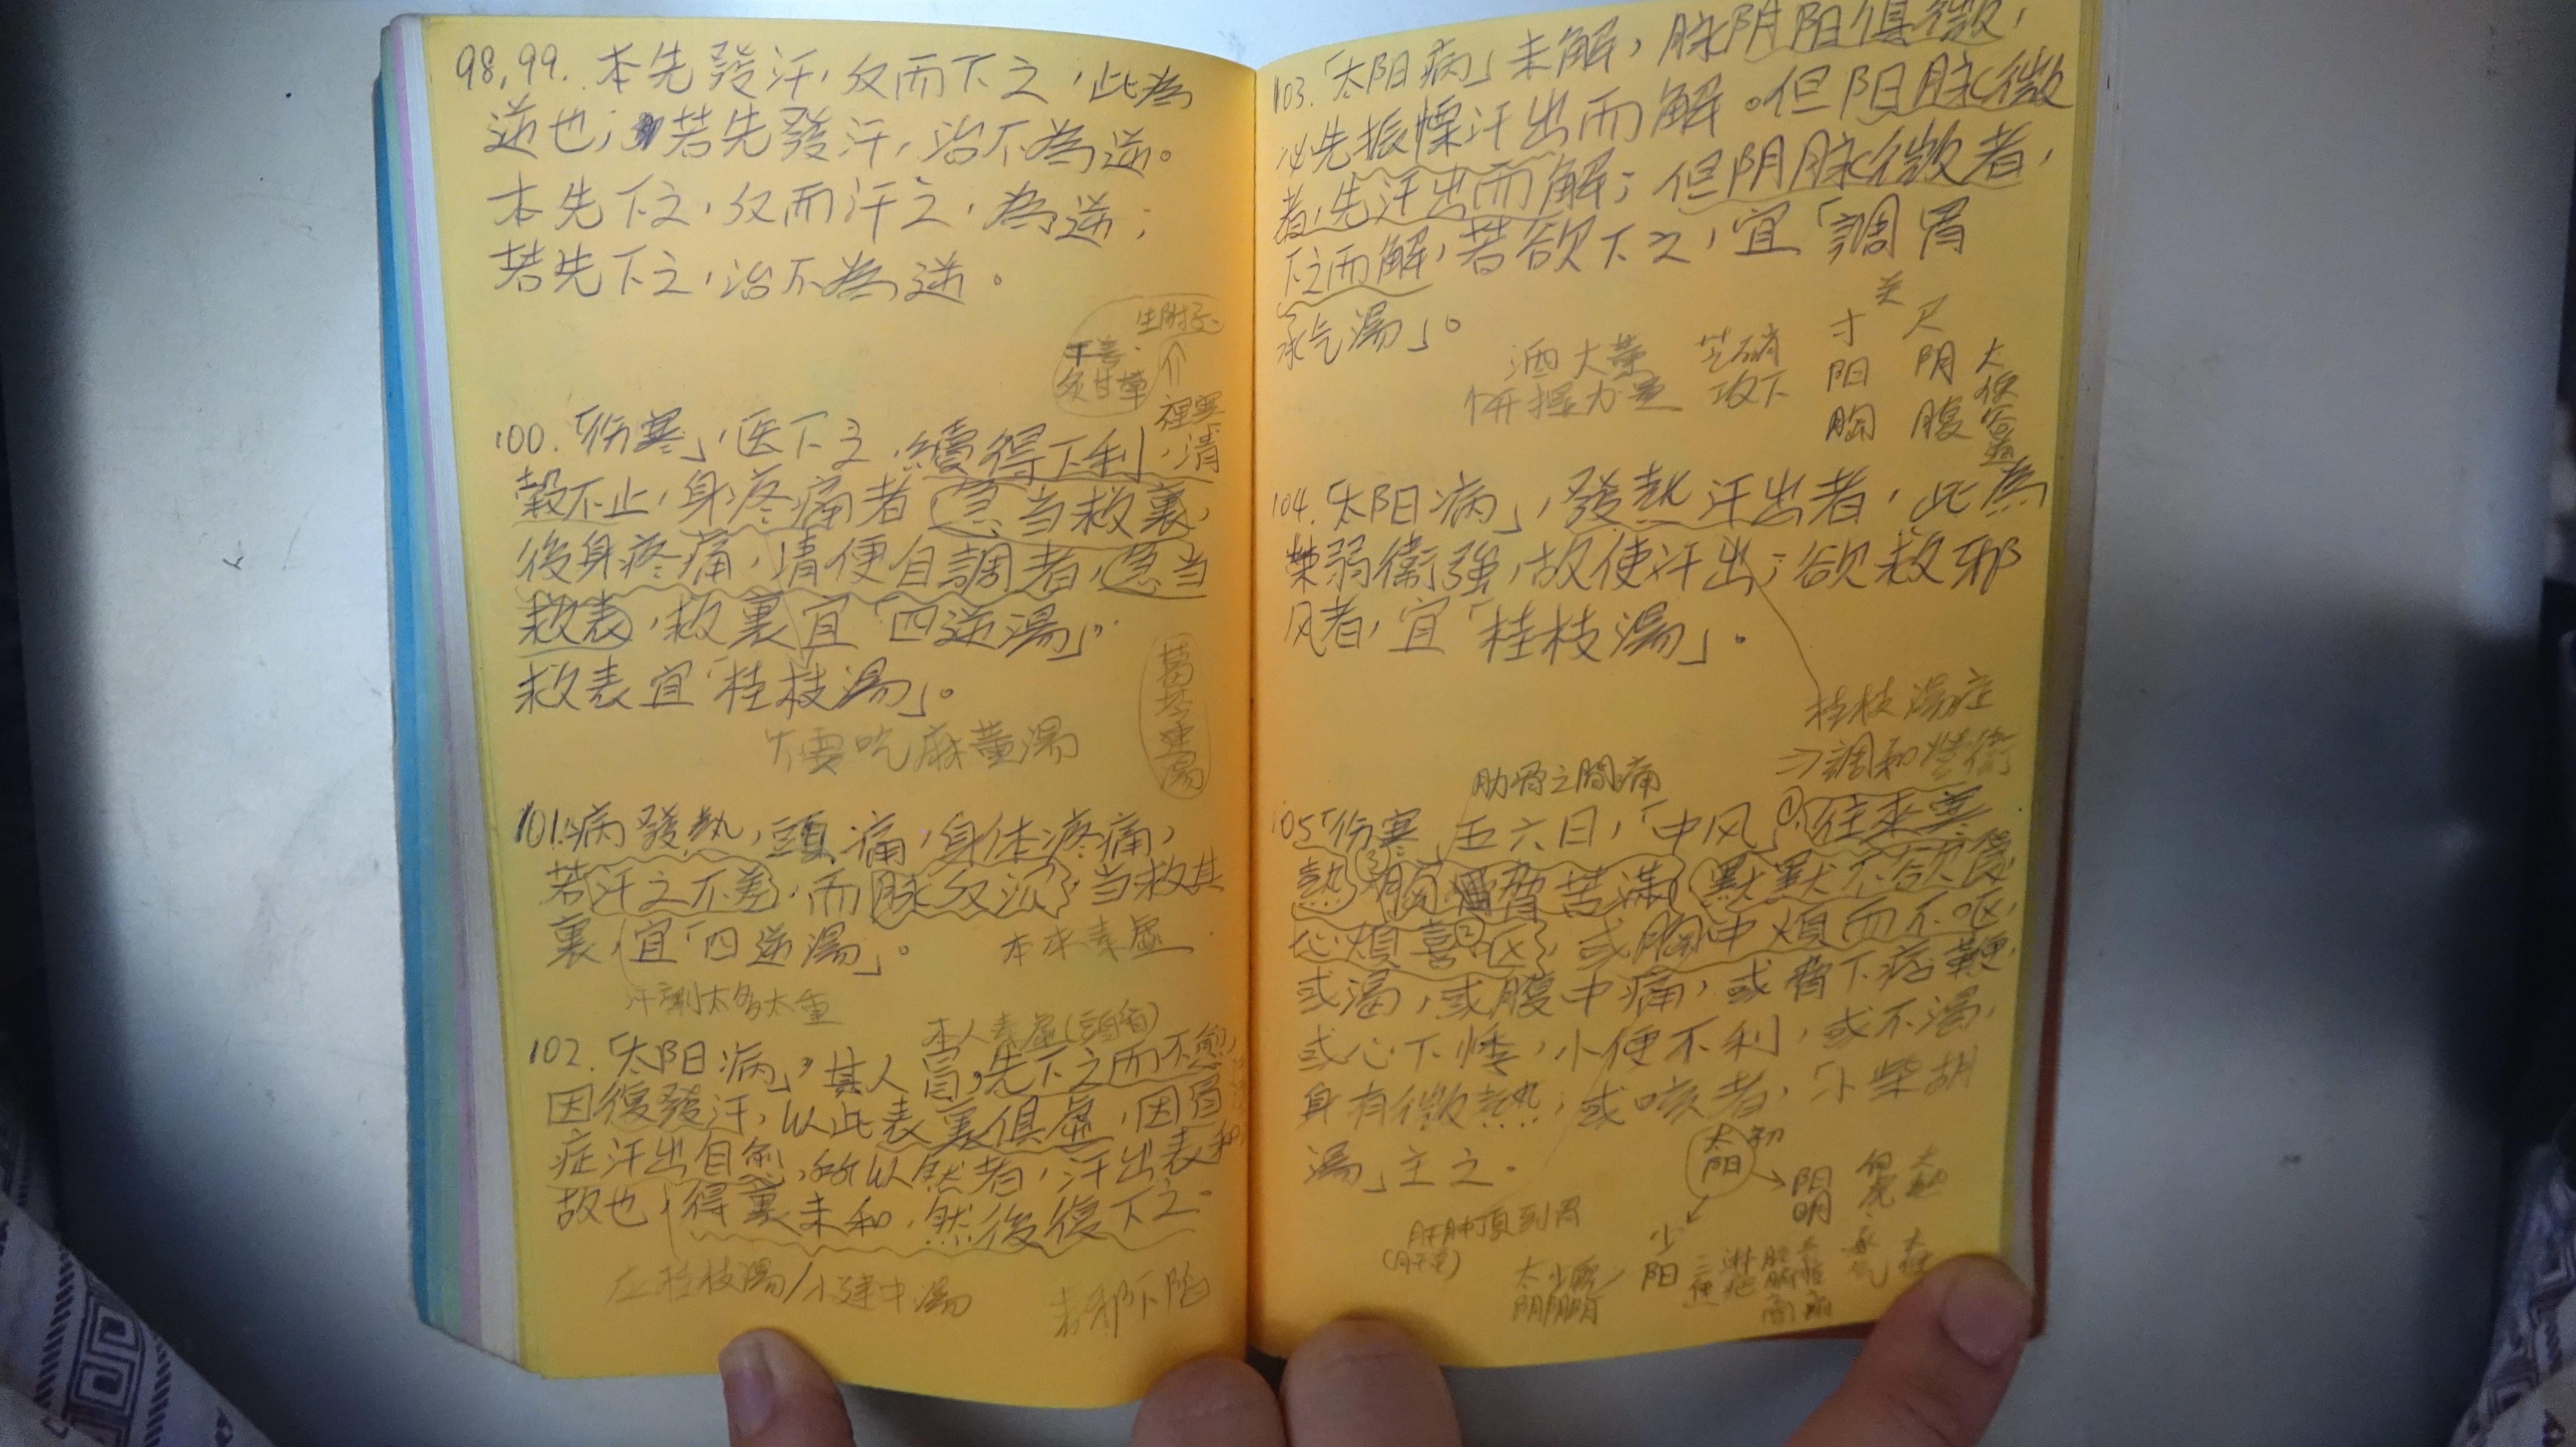 98,99. 本先發汗，反而下之，此為
逆也；若先發汗，治不為逆。
本先下之，反而汗之，為逆；
若先下之，治不為逆。
生附子
干姜
炙甘草
裡寒
100.「伤寒」，医下之，續得下利，清
穀不止，身疼痛者，急当救裏，
後身疼痛，清便自調者，急当
救表，救裏宜「四逆湯」，
救表宜「桂枝湯」。
葛芩連湯
不要吃麻黃湯
101. 病發熱，頭痛，身体疼痛，
若汗之不差，而脉反沉，当救其
裏，宜「四逆湯」。
本來素虛
汗劑太多太重
本人素虛(頭冒)
102.「太阳病」，其人冒，先下之而不愈
因復發汗，以此表裏俱虛，因冒
症汗出自愈，所以然者，汗出表和
故也，得裏未和，然後復下之。
應桂枝湯/小建中湯
表邪下陷
103.「太阳病」未解，脉阴阳俱微，
必先振慄汗出而解。但阳脉微
者，先汗出而解；但阴脉微者，
下之而解，若欲下之，宜「調胃
承气湯」。
关
寸 尺
阳 阴
胸 腹
酒大黃 芒硝
攻下
104.「太阳病」，發熱汗出者，此為
榮弱衛強，故使汗出；欲救邪
风者，宜「桂枝湯」。
桂枝湯症
⇒調和營衛
肋骨之間痛
105「伤寒」五六日，「中风」①往來寒
熱③胸脅苦滿，默默不欲食
心煩喜②呕，或胸中煩而不呕，
或渴，或腹中痛，或脅下痞鞕，
或心下悸，小便不利，或不渴，
身有微熱，或咳者，「小柴胡
湯」主之。
太阳
初
阳明
少阳
肝肿頂到胃